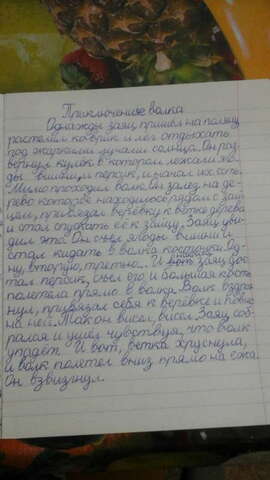 Приключение волка
Однажды заяц пришёл на поляну
растелил коврик и лёг отдыхать
под жаркими лучами солнца. Он раз
вернул кулёк в котором лежали яго
ды вишни и персик, и начал их есть.
Мимо проходил волк. Он залез на де-
рево которое находилось рядом с зай-
цем, привязал верёвку к ветке дерева
и стал спускать её к зайцу. Заяц уви-
дил это. Он съел ягоды вишни и
стал кидать в волка косточки. Од-
ну, вторую, третью... И заяц дос-
тал персик, съел его и большая кость
полетела прямо в волка. Волк вздрог
нул, привязал себя к верёвке и повис
на ней. Так он висел, висел. Заяц соб-
рался и ушёл чувствуя, что волк
упадёт. И вот, ветка хруснула,
и волк полетел вниз прямо на ежа.
Он взвизгнул.